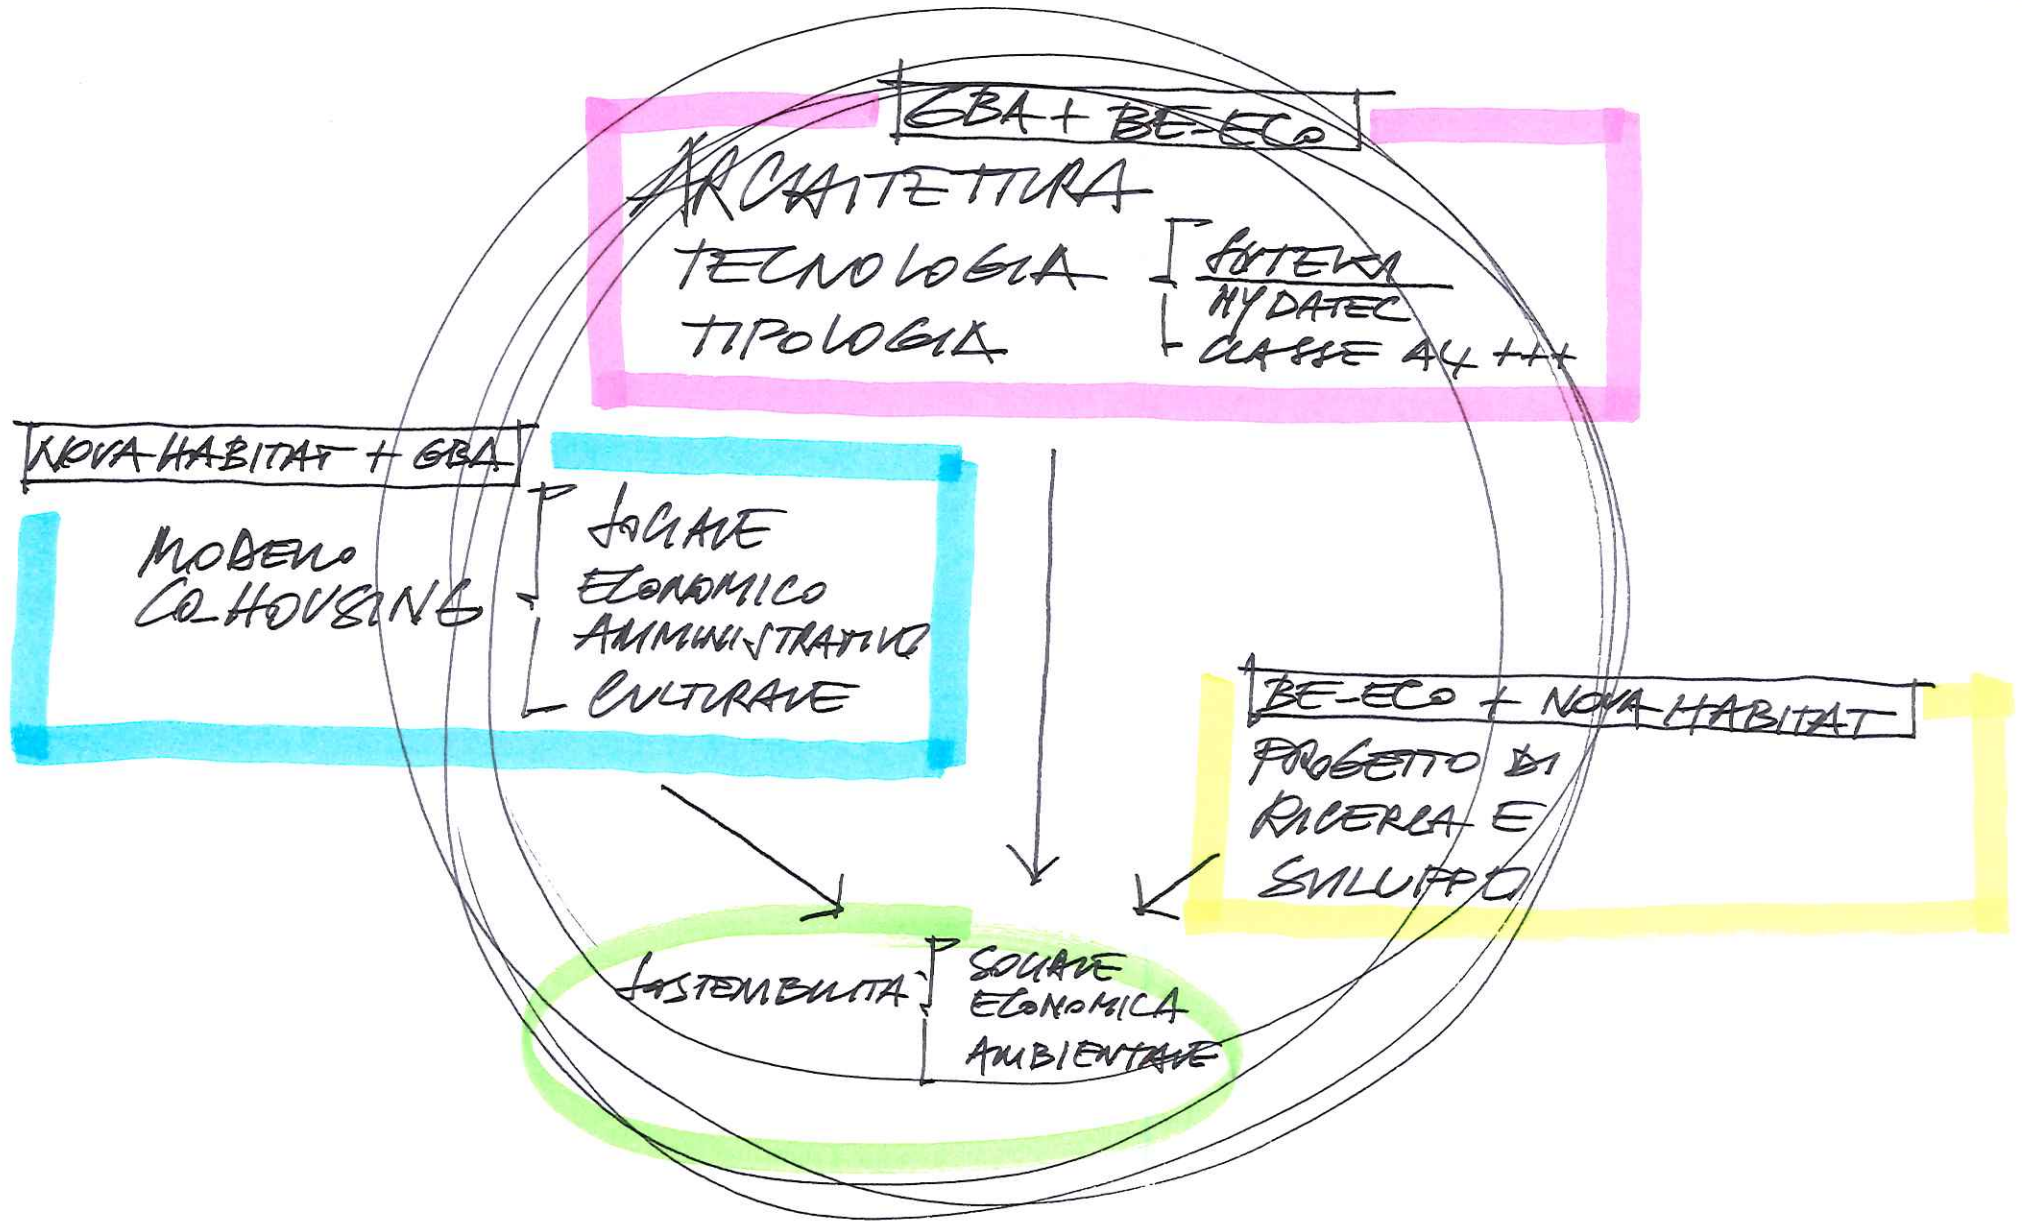 GBA + BE-ECO
ARCHITETTURA
TECNOLOGIA
HYDATEC
TIPOLOGIA
CLASSE A4 +++
NOVA-HABITAT + GBA
MODELLO
CO-HOUSING
SOCIALE
ECONOMICO
AMMINISTRATIVO
CULTURALE
BE-ECO + NOVA-HABITAT
PROGETTO DI
RICERCA E
SVILUPPO
SOSTENIBILITA'
SOCIALE
ECONOMICA
AMBIENTALE